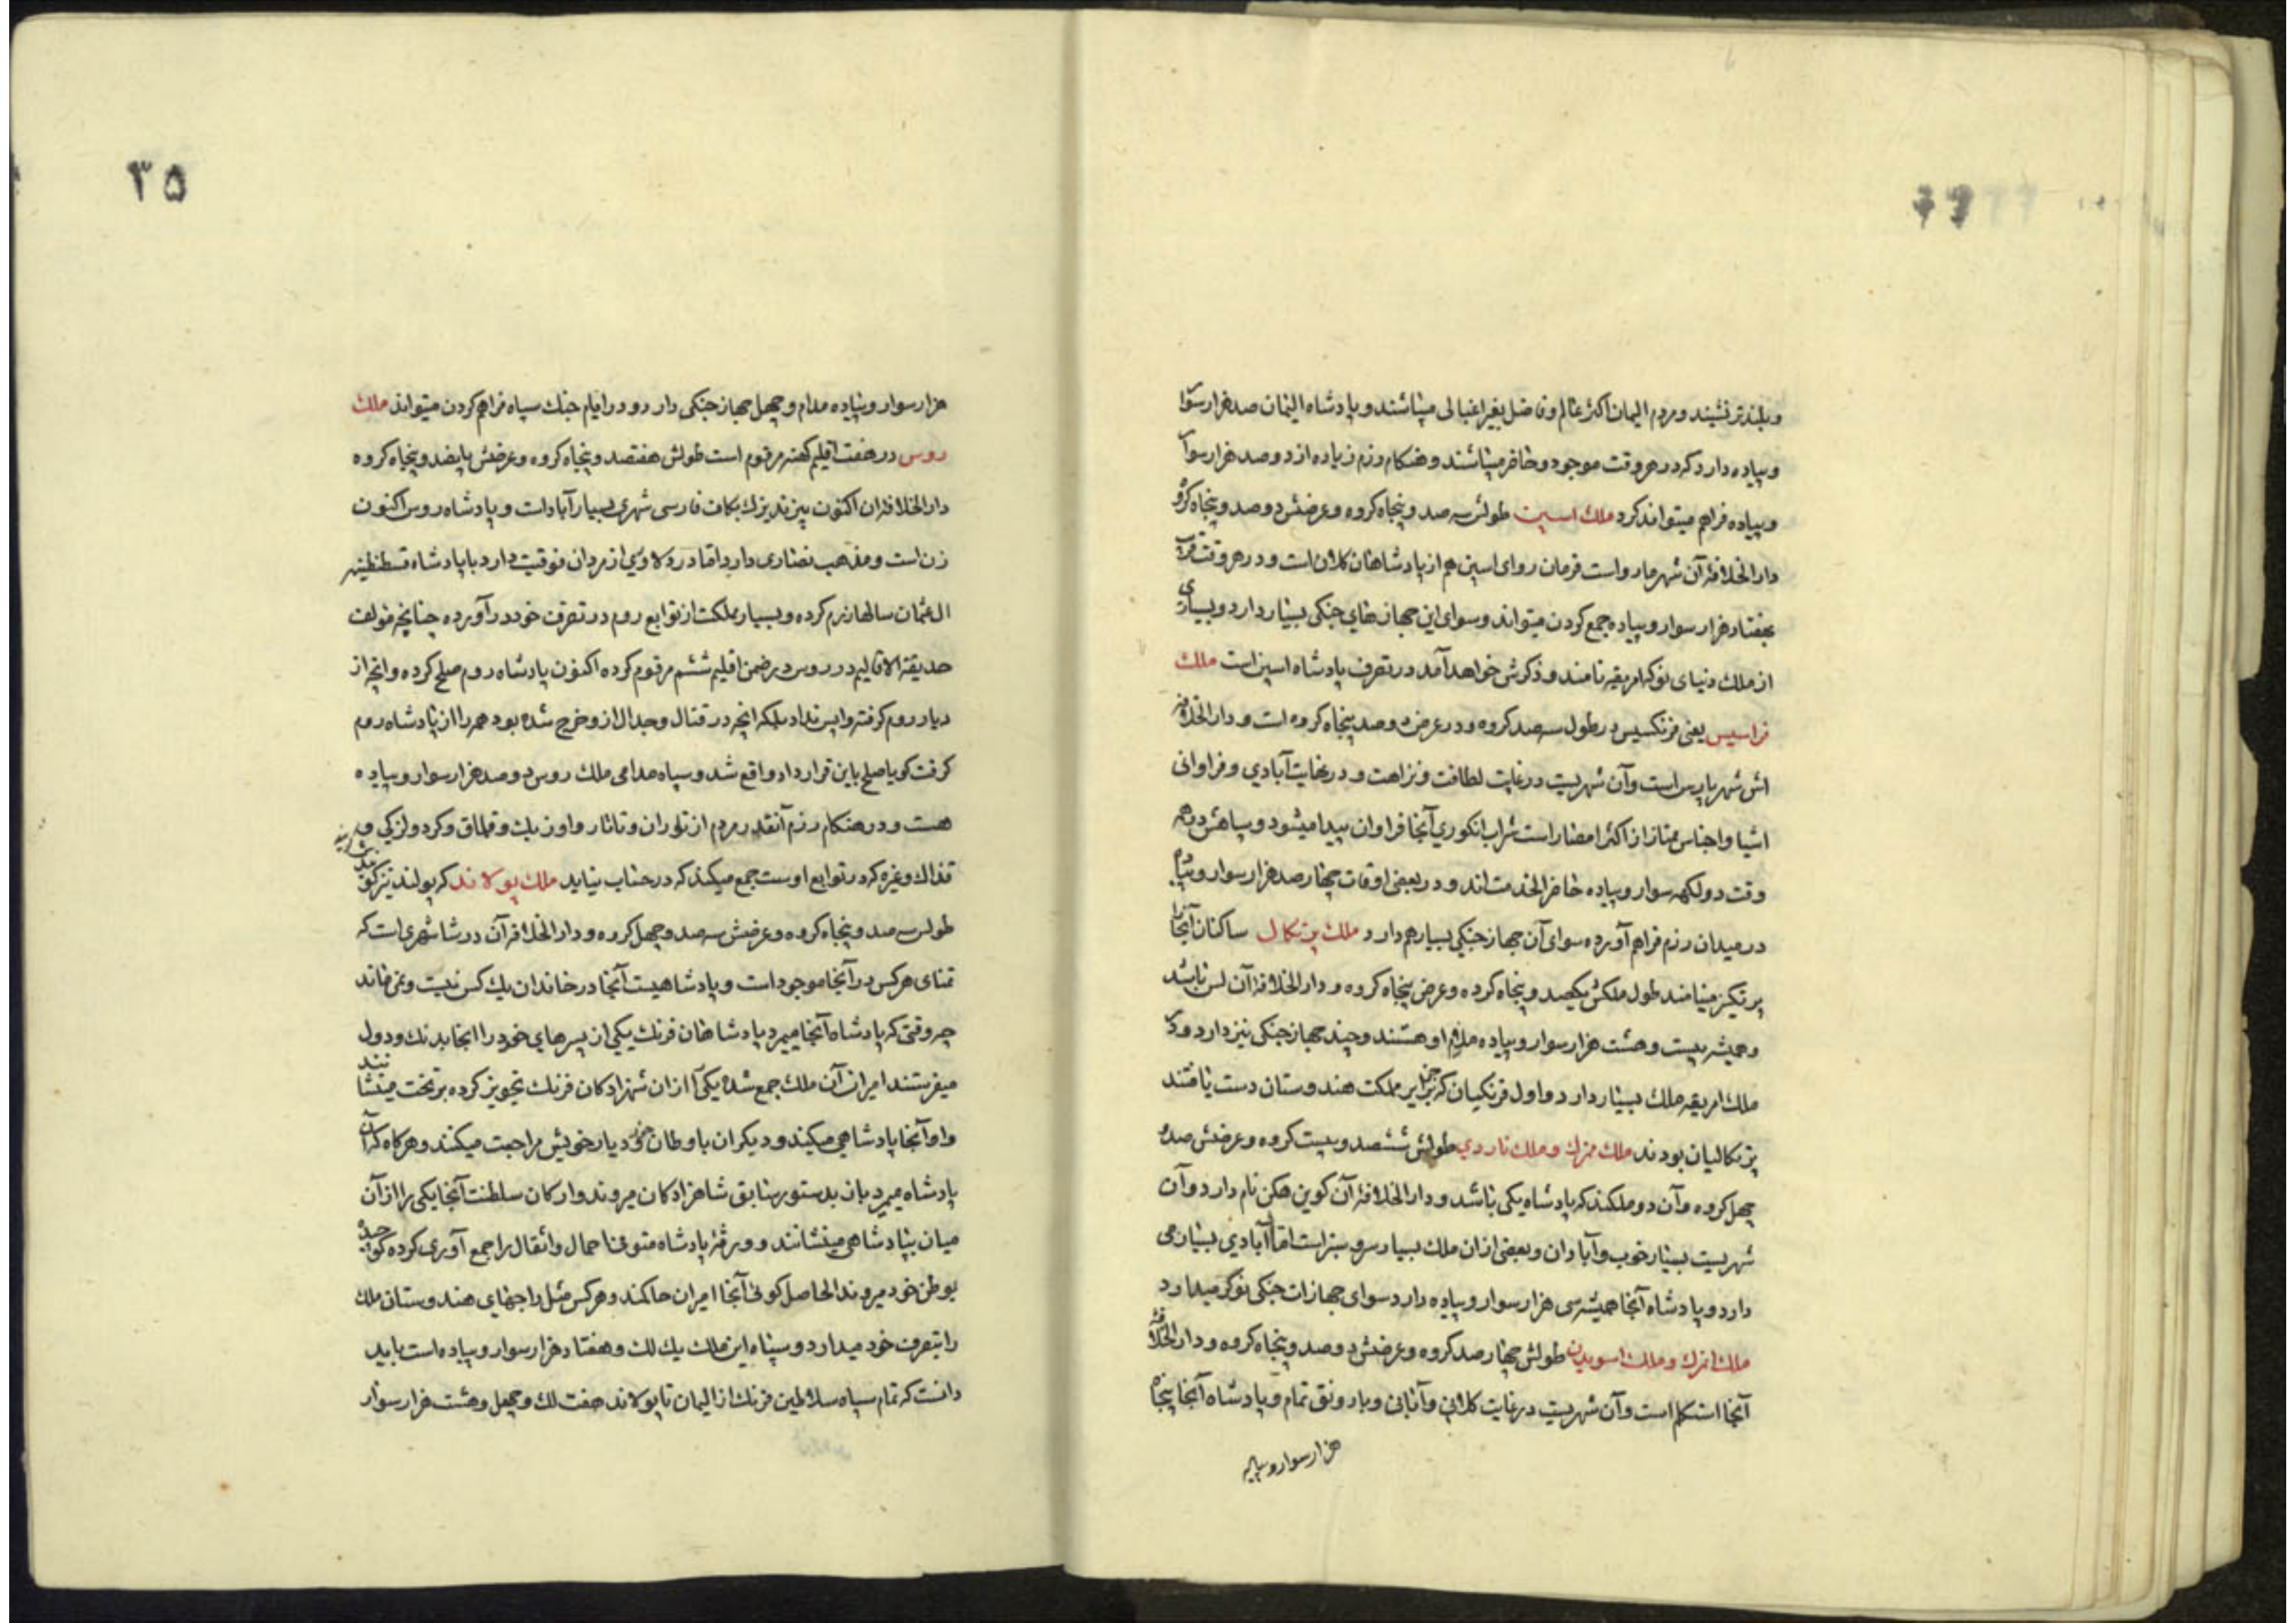 و بلند تر نشیند و مردم الیمان اکثر عالم و فاضل بغیر اغبالی میباشند و پادشاه الیمان صد هزار سوار
و پیاده دارد که در هر وقت موجود و حاضر میباشند و هنکام رزم زیاده از دو صد هزار سوار
و پیاده فراهم میتواند کرد ملك اسپین طولش سه صد و پنجاه کروه و عرضش دو صد و پنجاه کروه
دار الخلافهٔ آن شهر مارو است فرمان روای اسپین هم از پادشاهان کلان است و در هر وقت قریب
بهفتاد هزار سوار و پیاده جمع کردن میتواند و سوای این جهاز های جنکی بسیار دارد و بسیاری
از ملك دنیای نو که امریقه نامند و ذکرش خواهد آمد در تصرف پادشاه اسپین است ملك
فراسیس یعنی فرنکسیس در طول سه صد کروه و در عرض دو صد پنجاه کروه است و دار الخلافه
اش شهر پارس است و آن شهریست در غایت لطافت و نزاهت و در نهایت آبادی و فراوانی
اشیا و اجناس ممتاز از اکثر امصار است شراب انکوری آنجا فراوان پیدا میشود و سپاهش در همه
وقت دو لکهه سوار و پیاده حاضر الخدمت اند و در بعضی اوقات چهار صد هزار سوار و پیاده
در میدان رزم فراهم آورده سوای آن جهاز جنکی بسیار هم دارد ملك پرتکال ساکنان آنجا را
پرتکیز مینامند طول ملکش یکصد و پنجاه کرده و عرض پنجاه کروه و دار الخلافهٔ آن لس باشد
و همیشه بیست و هشت هزار سوار و پیاده ملازم او هستند و چند جهاز جنکی نیز دارد و در
ملك امریقه ملك بسیار دارد و اول فرنکیان که بر جزایر مملکت هندوستان دست یافتند
پرتکالیان بودند ملك منرك و ملك ناردی طولش ششصد و بیست کروه و عرضش صد و
چهل کروه و آن دو ملکند که پادشاه یکی باشد و دار الخلافهٔ آن کوپن هکن نام دارد و آن
شهریست بسیار خوب و آبادان و بعضی ازان ملك بسیار سرو سبز است اما آبادی بسیار می
دارد و پادشاه آنجا همیشه سی هزار سوار و پیاده دارد سوای جهازات جنکی نوکر میدارد
ملك انرك و ملك اسویدن طولش چهار صد کروه و عرضش دو صد و پنجاه کروه و دار الخلافهٔ
آنجا استکلم است و آن شهریست در غایت کلانی و آبانی و با رونق تمام و پادشاه آنجا پنجاه
هزار سوار و پیاده
۳۵
هزار سوار و پیاده مدام و چهل جهاز جنکی دارد و در ایام جنك سپاه فراهم کردن میتواند ملك
روس در هفت اقلیم کهنه مرقوم است طولش هفتصد و پنجاه کروه و عرضش پانصد و پنجاه کروه
دار الخلافهٔ ان اکنون پیتر تدیزك بکاف فارسی شهری بسیار آباد است و پادشاه روس اکنون
زن است و مذهب نصاری دارد اما در دلاوری از مردان فوقیت دارد با پادشاه قسطنطنیه
ال عثمان سالها رزم کرده و بسیار مملکت از توابع روم در تصرف خود در آورده چنانچه مؤلف
حدیقة الاقالیم در روس در ضمن اقلیم ششم مرقوم کرده اکنون پادشاه روم صلح کرده و انچه از
دیار روم کرفته واپس نداد بلکه انچه در قتال و جدال ازو خرج شده بود همه را از پادشاه روم
کرفت کویا صلح باین قرار داد واقع شد و سپاه مدامی ملك روس دو صد هزار سوار و پیاده
هست و در هنکام رزم آنقدر مردم از توران و تاتار و اوزبك و قلماق و کرد و لزکی و
قذاك و غیره که در توابع اوست جمع میکند که در حساب نیاید ملك پولاند که پولند نیز کویند
طولس سه صد و پنجاه کروه و عرضش سه صد و چهل کروه و دار الخلافهٔ آن درشا شهری است که
تمنای هر کس در آنجا موجود است و پادشاهیت آنجا در خاندان یك کس نیست و نمی ماند
چه وقتی که پادشاه آنجا میمرد پادشاهان فرنك یکی از پسرهای خود را انجا بدرنك و دول
میفرستند امیران آن ملك جمع شده یکی را ازان شهزادکان فرنك تجویز کرده بر تخت مینشانند
و او آنجا پادشاهی میکیند و دیکران باوطان خود و دیار خویش مراجعت میکنند و هرکاه که آن
پادشاه میمرد باز بدستور سابق شاهزادکان میروند و ارکان سلطنت آنجا یکی را از آن
میان بپادشاهی مینشانند و ورثهٔ پادشاه متوفی احمال و اثقال را جمع آوری کرده کوچیده
بوطن خود میروند الحاصل کوئی آنجا امیران حاکمند و هر کس مثل راجهای هندوستان ملك
را بتصرف خود میدارد و سپاه این ملك یك لك و هفتاد هزار سوار و پیاده است باید
دانست که تمام سپاه سلاطین فرنك از الیمان تا پولاند هفت لك و چهل و هشت هزار سوار